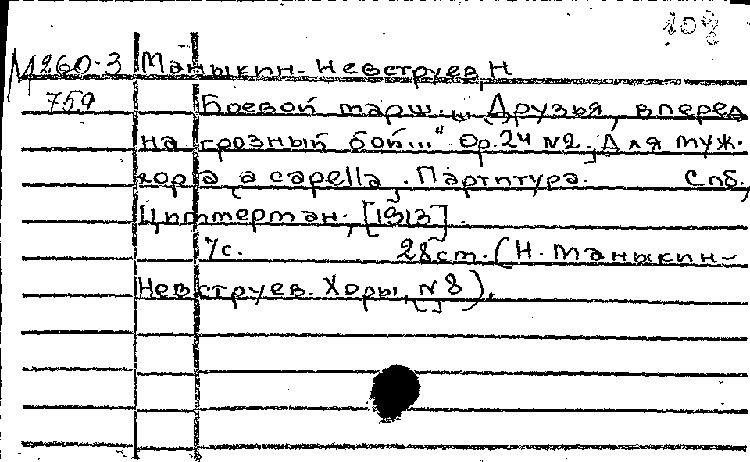 108
М260-3 Маныкин-Невструев, Н
759 Боевой марш... „Друзья, вперед
на грозный бой!!!" Ор.24 №2. Для муж.
хора a capella. Партитура. Спб,
Циммерман, [1913].
7с. 28см. (Н. Маныкин-
Невструев. Хоры, №8).